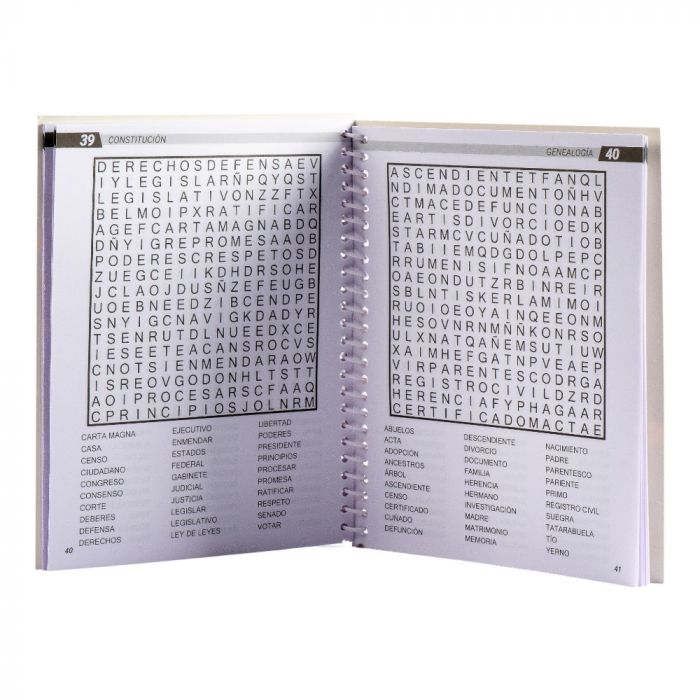 39 CONSTITUCIÓN
D E R E C H O S D E F E N S A E V
I Y L E G I S L A R Ñ P Q Y Q S T
L E G I S L A T I V O N Z Z F T X
B E L M O I P X R A T I F I C A R
A G E F C A R T A M A G N A B D Q
D Ñ Y I G R E P R O M E S A A O B
P O D E R E S C R E S P E T O S D
Z U E G C E I I K D H D R S O H E
J C L A O J D U S Ñ Z E F E G U B
U O E B N E E D Z I B C E N D P E
S N Y I G C N A V I G K D A D Y R
T S E N R U T D L N U E E D X C E
I E S E E T E A C A N S R O C V S
C N O T S I E N M E N D A R A O W
I S R E O V G O D O N H L T S T T
A O I P R O C E S A R S C F A A Q
C P R I N C I P I O S J O L N R M
CARTA MAGNA
CASA
CENSO
CIUDADANO
CONGRESO
CONSENSO
CORTE
DEBERES
DEFENSA
DERECHOS
EJECUTIVO
ENMENDAR
ESTADOS
FEDERAL
GABINETE
JUDICIAL
JUSTICIA
LEGISLAR
LEGISLATIVO
LEY DE LEYES
LIBERTAD
PODERES
PRESIDENTE
PRINCIPIOS
PROCESAR
PROMESA
RATIFICAR
RESPETO
SENADO
VOTAR
40
GENEALOGÍA 40
A S C E N D I E N T E T F A N Q L
N D I M A D O C U M E N T O Ñ H V
C T M A C E D E F U N C I O N A B
E A R T I S D I V O R C I O E D K
S T A R M C V C U Ñ A D O T I O B
T A B I I E M Q D G D O L P E P C
R R U M E N I S I F N O A A M C P
O A E O N D U T Z R B I N R E I R
S B L N T I S K E R L A M I M O I
R U O I O E O Y A I N Q E E O N M
H E S O V N R N M Ñ Ñ K O N R S O
U L X A N A Ñ I Ñ A E M S U T I U W
I X A I M H E F G A T N P V E A E P
V I R P A R E N T E S C O D R G A
R E G I S T R O C I V I L D Z R D
H E R E N C I A F Y P H A G A A R
C E R T I F I C A D O M A C T A E
ABUELOS
ACTA
ADOPCIÓN
ANCESTROS
ÁRBOL
ASCENDIENTE
CENSO
CERTIFICADO
CUÑADO
DEFUNCIÓN
DESCENDIENTE
DIVORCIO
DOCUMENTO
FAMILIA
HERENCIA
HERMANO
INVESTIGACIÓN
MADRE
MATRIMONIO
MEMORIA
NACIMIENTO
PADRE
PARENTESCO
PARIENTE
PRIMO
REGISTRO CIVIL
SUEGRA
TATARABUELA
TÍO
YERNO
41